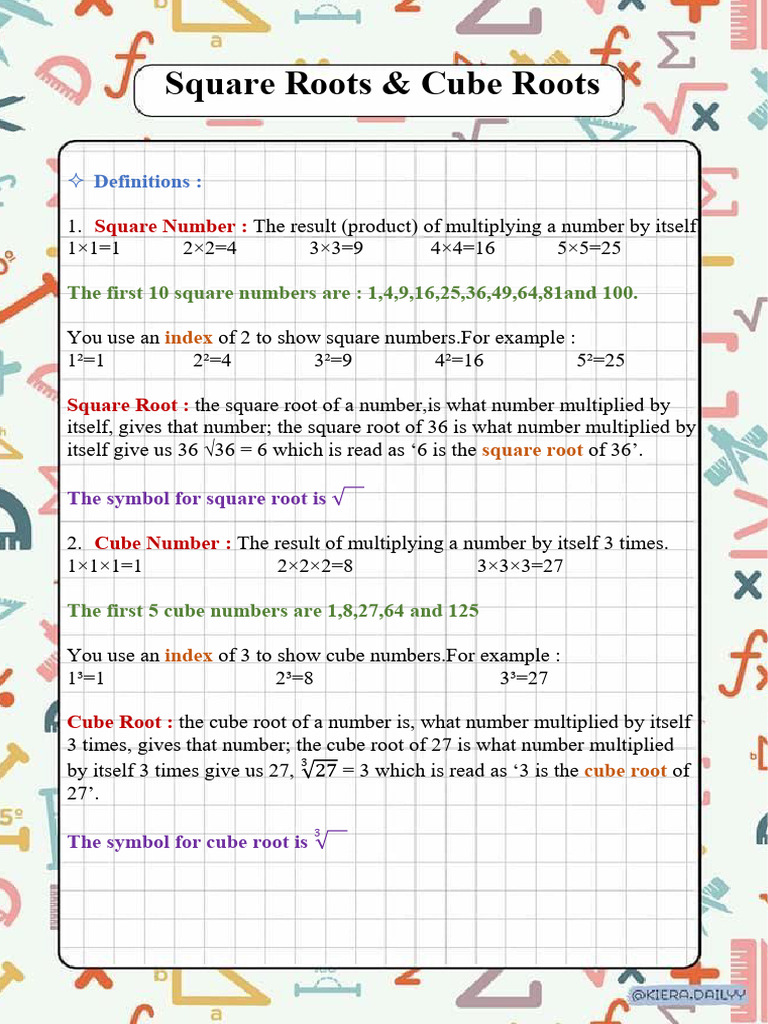 Square Roots & Cube Roots
✧ Definitions :
1. Square Number : The result (product) of multiplying a number by itself
1×1=1 2×2=4 3×3=9 4×4=16 5×5=25
The first 10 square numbers are : 1,4,9,16,25,36,49,64,81and 100.
You use an index of 2 to show square numbers.For example :
1²=1 2²=4 3²=9 4²=16 5²=25
Square Root : the square root of a number,is what number multiplied by
itself, gives that number; the square root of 36 is what number multiplied by
itself give us 36 √36 = 6 which is read as ‘6 is the square root of 36’.
The symbol for square root is √
2. Cube Number : The result of multiplying a number by itself 3 times.
1×1×1=1 2×2×2=8 3×3×3=27
The first 5 cube numbers are 1,8,27,64 and 125
You use an index of 3 to show cube numbers.For example :
1³=1 2³=8 3³=27
Cube Root : the cube root of a number is, what number multiplied by itself
3 times, gives that number; the cube root of 27 is what number multiplied
by itself 3 times give us 27, ∛27 = 3 which is read as ‘3 is the cube root of
27’.
The symbol for cube root is ∛
@KIERA.DAILYY